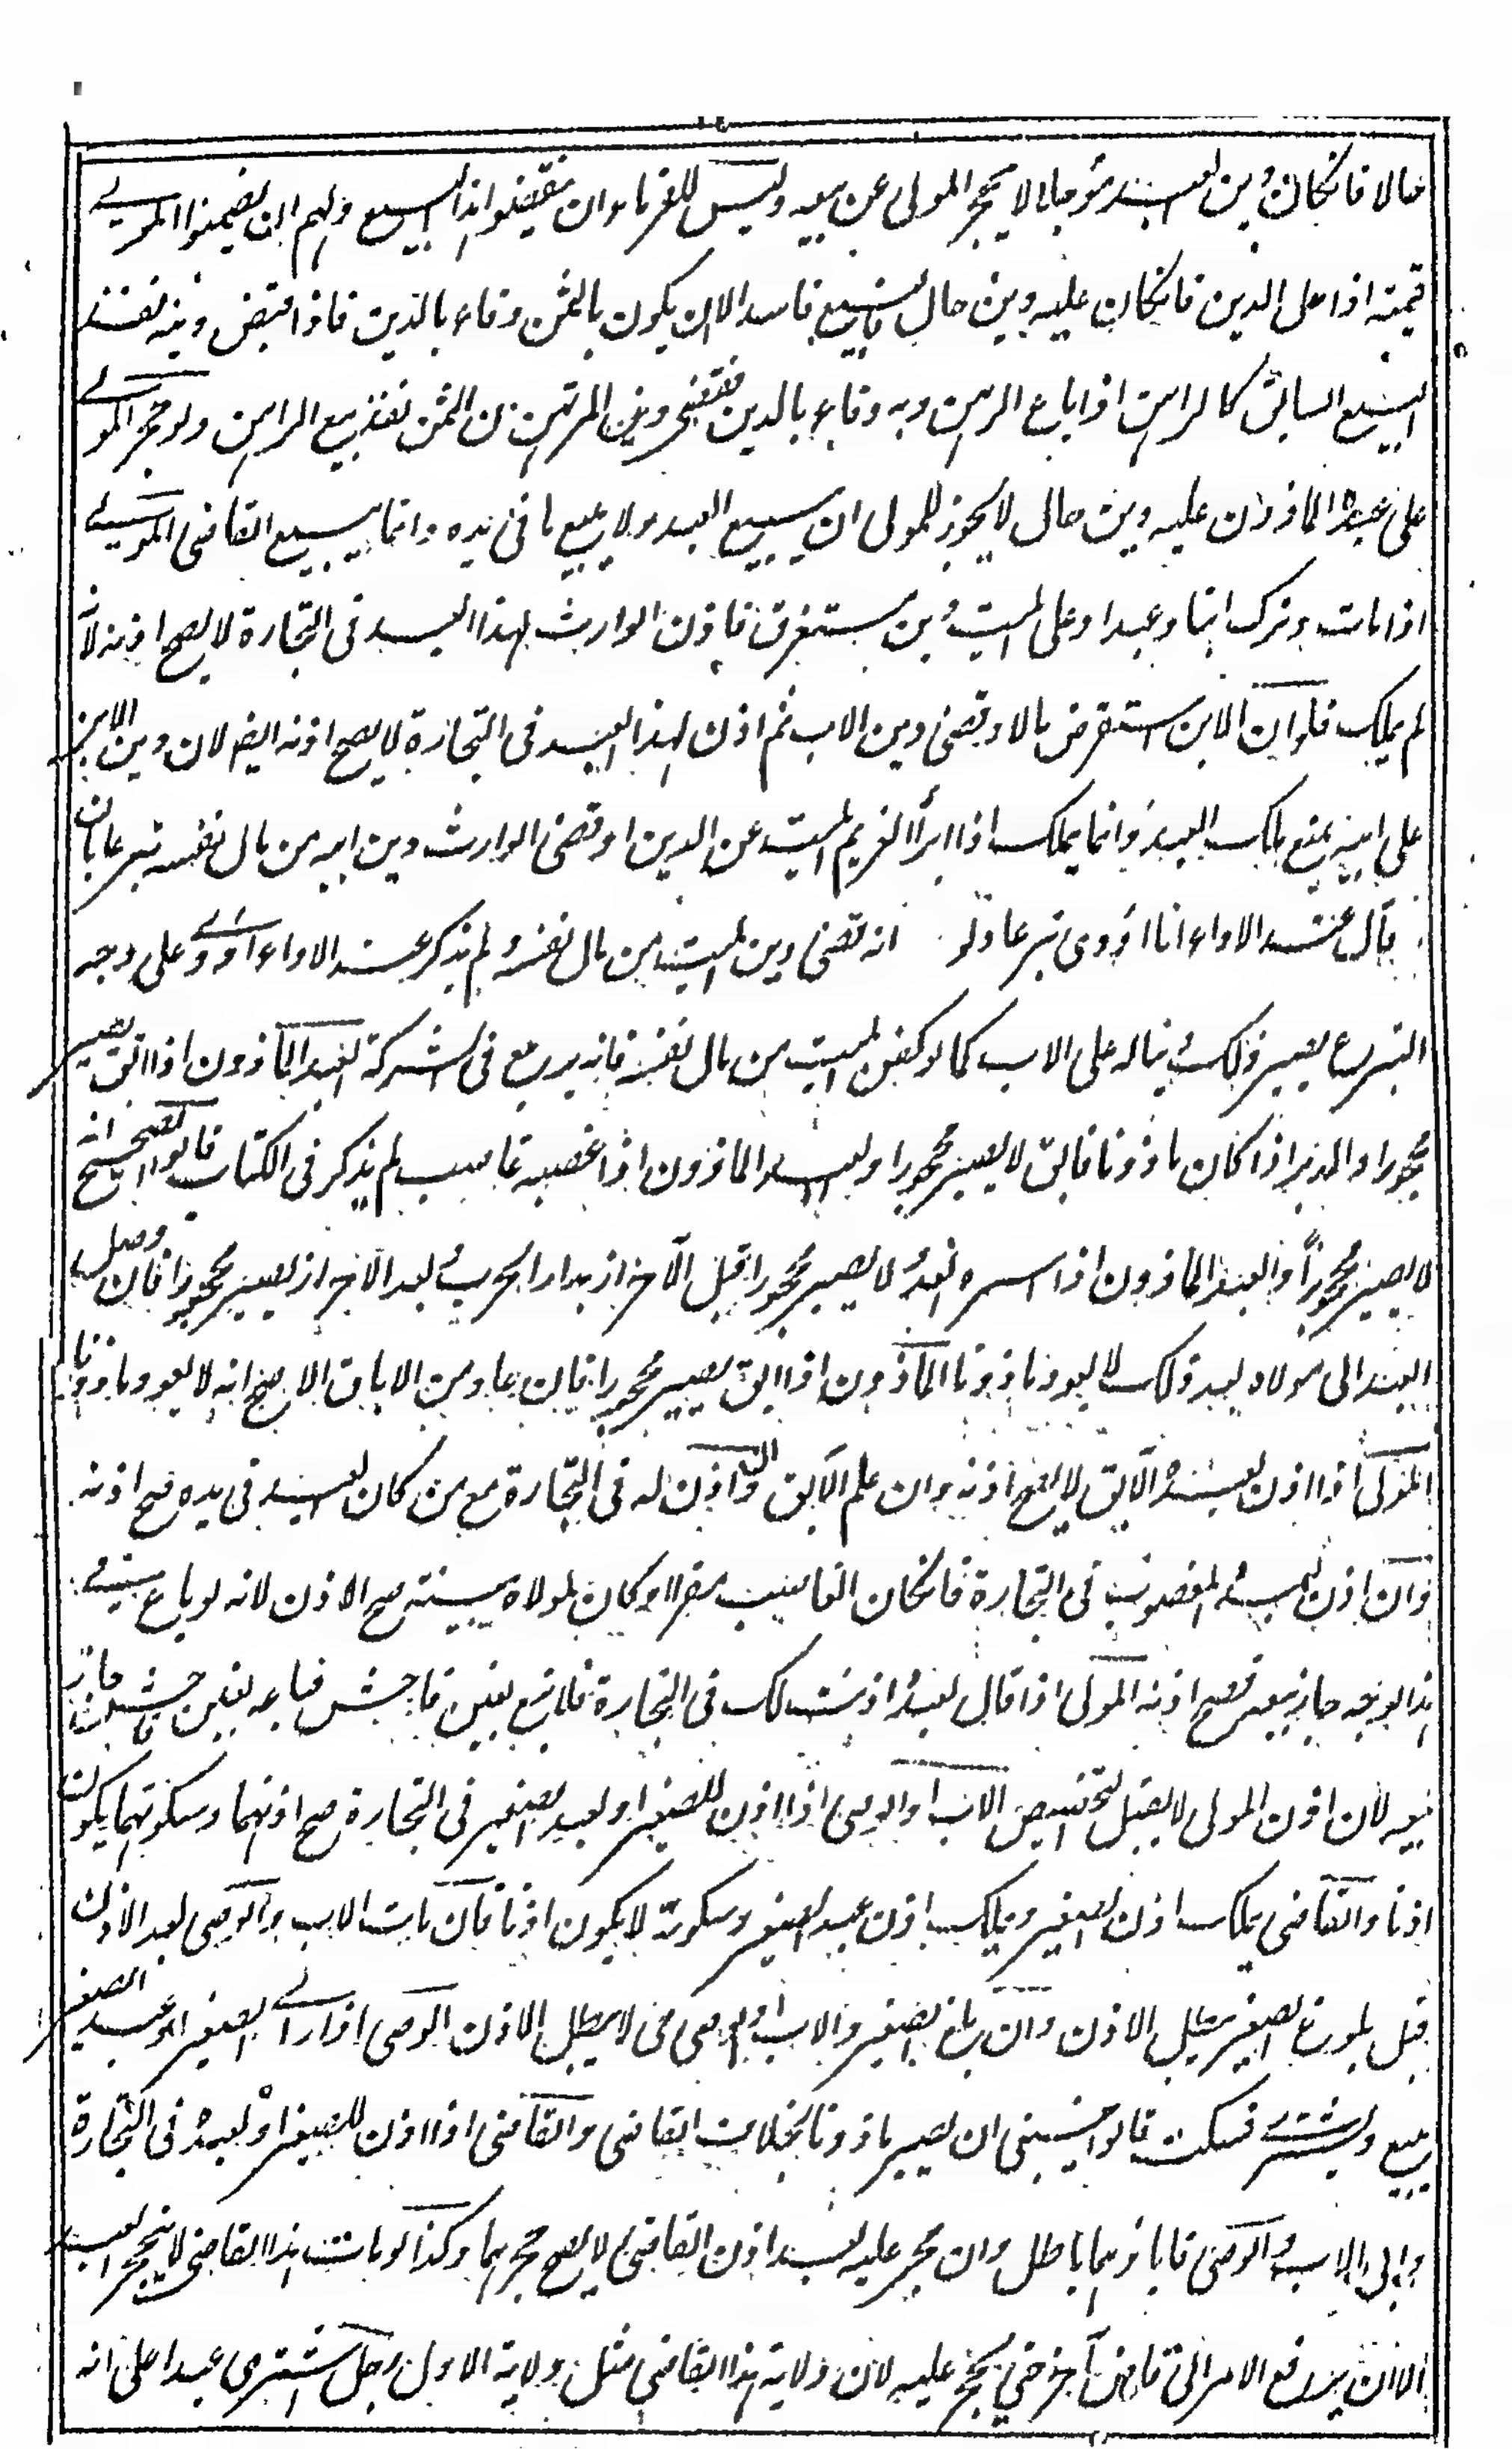 حالا فانكان دين العبد مؤجلا لا يحجر المولى عن بيعه وليس للغرماء ان ينقضوا هذا البيع ولهم ان يضمنوا المولى
قيمته اذا حل الدين فانكان عليه دين حال فالبيع فاسد الا ان يكون بالثمن وفاء بالدين فاذا قبض دينه نفذ
البيع السابق كالراهن اذا باع الرهن وبه وفاء بالدين فقضى دين المرتهن من الثمن نفذ بيع الراهن ولو حجر المولى
على عبده الماذون عليه دين حال لا يجوز للمولى ان يبيع العبد ولا يبيع ما فى يده وانما يبيع القاضى المولى
اذا مات وترك ابنا وعبدا وعلى الميت دين مستغرق فاذن الوارث لهذا العبد فى التجارة لا يصح اذنه لانه
لم يملك فلو ان الابن استقرض مالا وقضى دين الاب ثم اذن لهذا العبد فى التجارة لا يصح اذنه ايضا لان دين الابن
على ابيه يمنع ملك العبد وانما يملك اذا ابرأ الغريم الميت عن الدين او قضى الوارث دين ابيه من مال نفسه تبرعا بان
قال عند الاداء انا اؤدى تبرعا ولو انه قضى دين الميت من مال نفسه ولم يذكر عند الاداء اؤدى على وجه
التبرع يصير ذلك دينا له على الاب كما لو كفن الميت من مال نفسه فانه يرجع فى التركة العبد الماذون اذا ابق يصير
محجورا والمدبر اذا كان ماذونا فابق لا يصير محجورا والعبد الماذون اذا غصبه غاصب لم يذكر فى الكتاب قالوا الصحيح انه
لا يصير محجورا والعبد الماذون اذا اسره العدو لا يصير محجورا قبل الاحراز بدار الحرب وبعد الاحراز يصير محجورا فان وصل
العبد الى مولاه بعد ذلك لا يعود ماذونا الماذون اذا ابق يصير محجورا فان عاد من الاباق الاصح انه لا يعود ماذونا
المولى اذا اذن لعبده الآبق لا يصح اذنه وان علم الآبق واذن له فى التجارة مع من كان العبد فى يده صح اذنه
وان اذن لعبده المغصوب فى التجارة فانكان الغاصب مقرا او كان لمولاه بينة صح الاذن لانه لو باع
هذا الوجه جاز بيعه فصح اذنه المولى اذا قال لعبده اذنت لك فى التجارة فلا تبع بغبن فاحش فباعه بغبن فاحش جاز
بيعه لان اذن المولى لا يقبل التخصيص الاب او الوصى اذا اذن للصغير او لعبد الصغير فى التجارة صح اذنهما وسكوتهما يكون
اذنا والقاضى يملك اذن الصغير ويملك اذن عبد الصغير وسكوته لا يكون اذنا فان مات الاب والوصى بعد الاذن
قبل بلوغ الصغير يبطل الاذن وان بلغ الصغير والاب او الوصى حى لا يبطل الاذن الوصى اذا رأى الصغير او عبد الصغير
يبيع ويشترى فسكت قالوا ينبغى ان يصير ماذونا بخلاف القاضى والقاضى اذا اذن للصغير او لعبده فى التجارة
وابى الاب والوصى فاباؤهما باطل وان حجر عليه بعد اذن القاضى لا يصح حجرهما وكذا لو مات هذا القاضى لا ينحجر العبد
الا ان يرفع الامر الى قاض آخر حتى يحجر عليه لان ولاية هذا القاضى مثل ولاية الاول رجل اشترى عبدا على انه